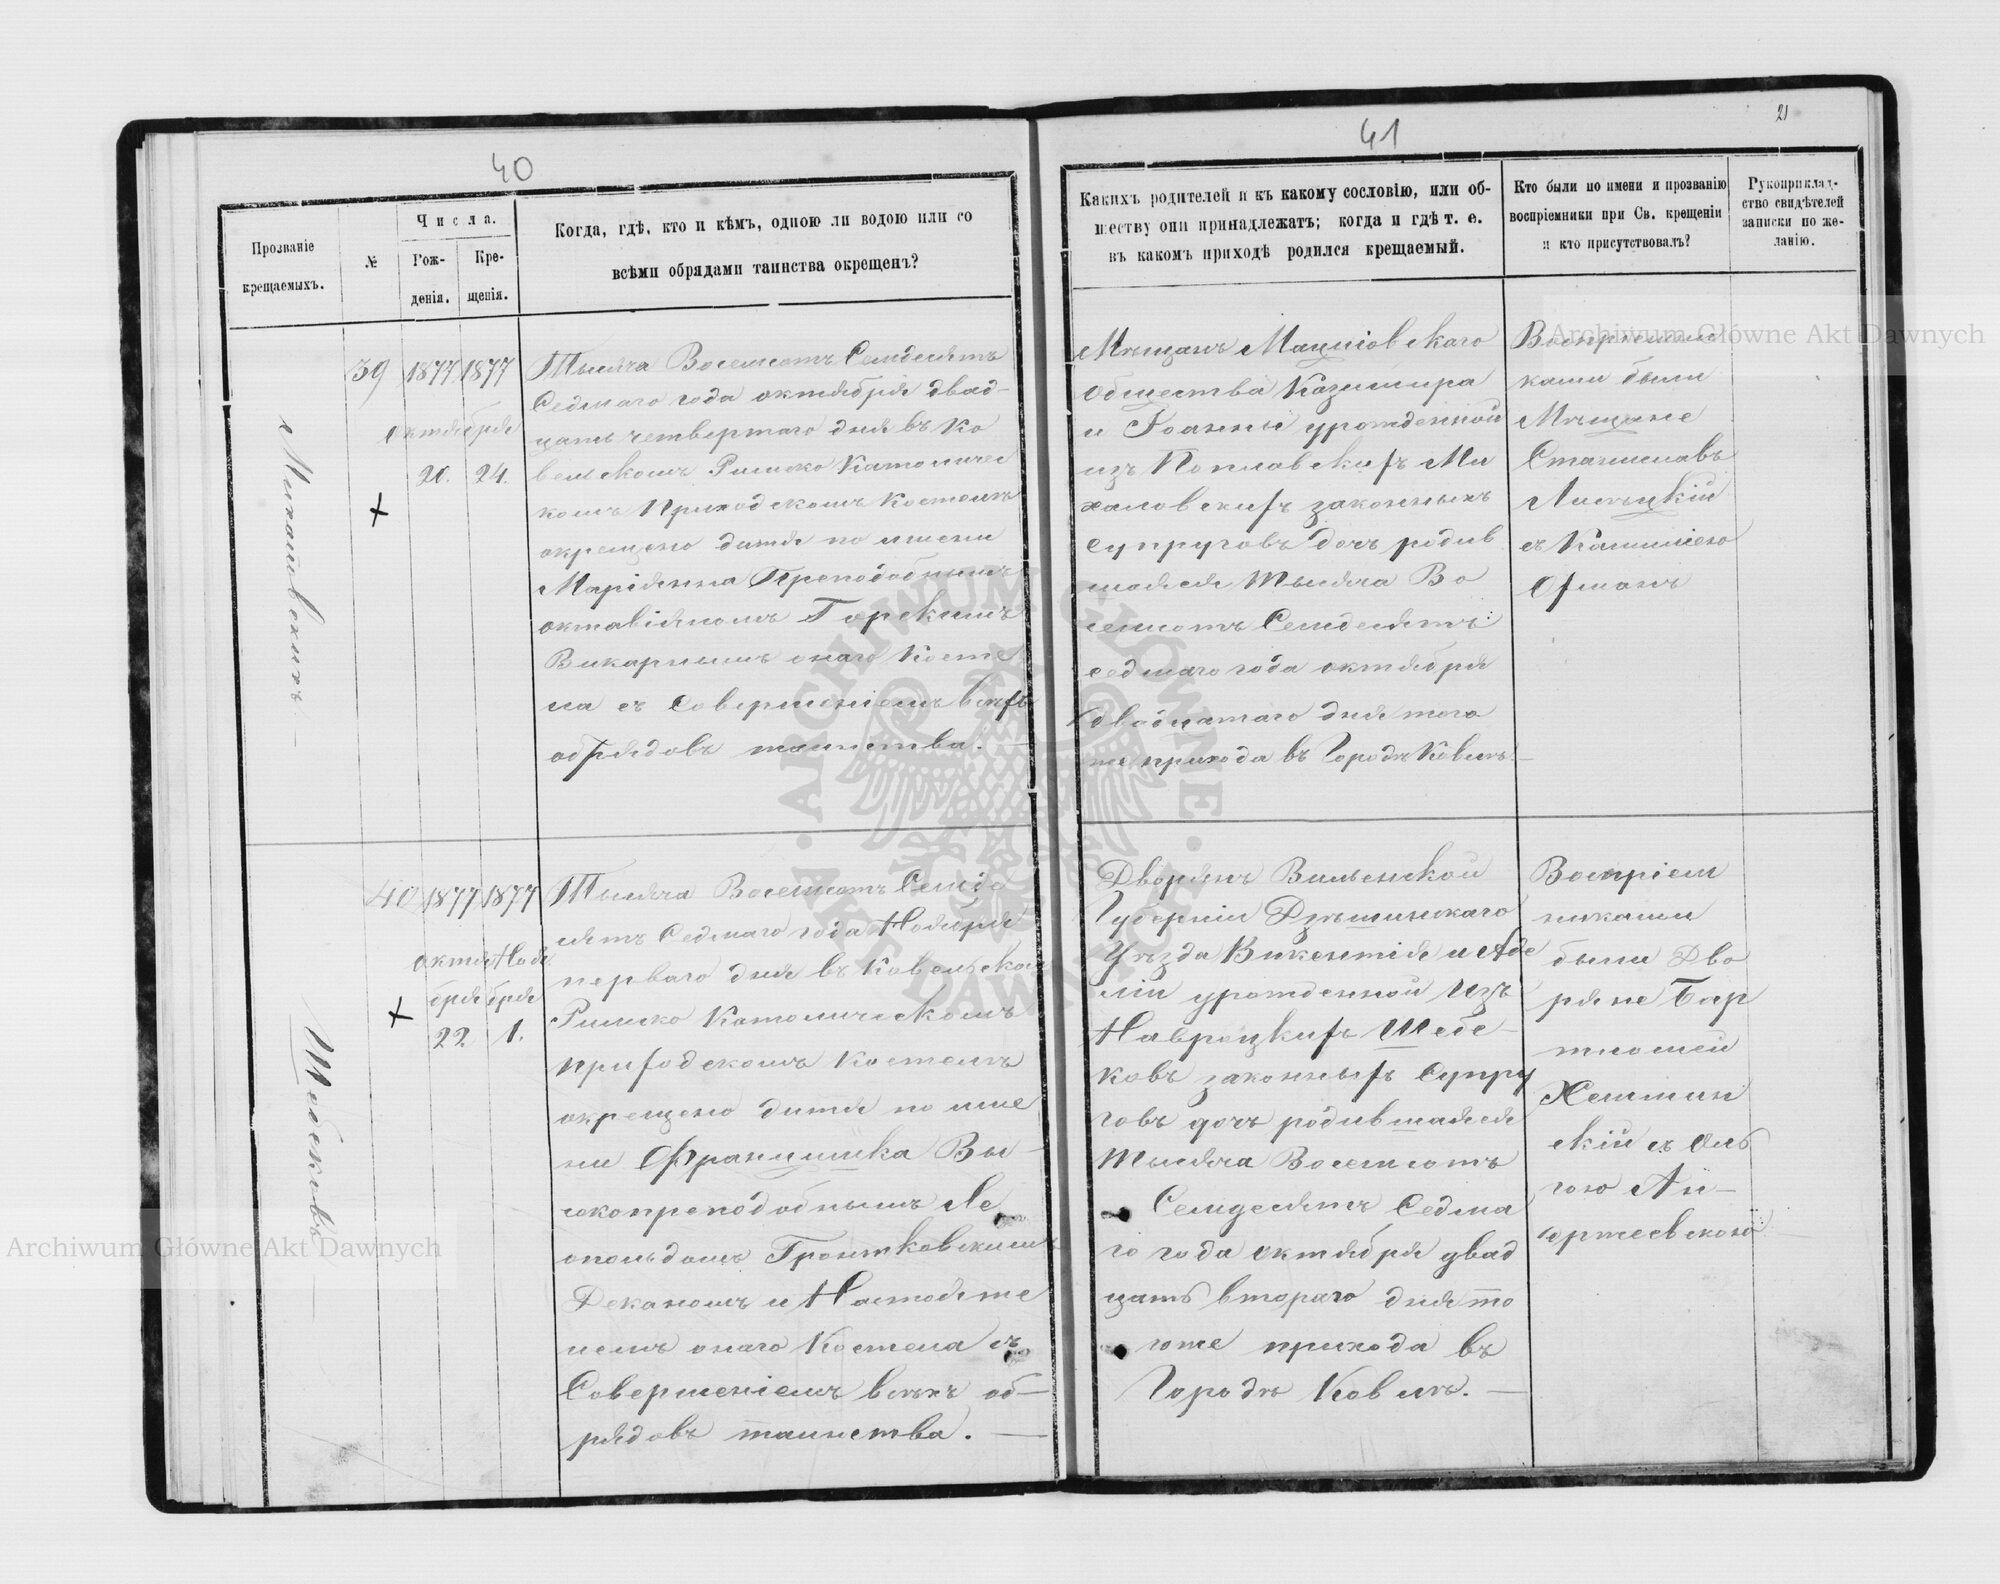 40
41
21
Прозваніе
крещаемыхъ.
№
Числа.
Рож-
денія.
Кре-
щенія.
Когда, гдѣ, кто и кѣмъ, одною ли водою или со
всѣми обрядами таинства окрещенъ?
Какихъ родителей и къ какому сословію, или об-
ществу они принадлежатъ; когда и гдѣ т. е.
въ какомъ приходѣ родился крещаемый.
Кто были по имени и прозванію
воспріемники при Св. крещеніи
и кто присутствовалъ?
Рукоприклад-
ство свидѣтелей
записки по же-
ланію.
Михаловскихъ
39
1877 1877
октября
20. 24.
Тысяча Восемсотъ Семдесятъ
Седмаго года октября двад-
цать четвертаго дня въ Ко
вельскомъ Римско Католичес
комъ Приходскомъ Костелѣ
окрещено дитя по имени
Маріянна Преподобнымъ
октавіяномъ Горскимъ
Викарнымъ онаго Косте
ла съ Совершеніемъ всѣхъ
обрядовъ таинства. —
Мѣщанъ Маціовскаго
общества Казимира
и Іоанны урожденной
изъ Поплавскихъ Ми
халовскихъ законныхъ
Супруговъ дочь родив
шаяся Тысяча Во
семсотъ Семдесятъ
седмаго года октября
двадцатаго дня того
же прихода въ Городѣ Ковлѣ —
Воспріемни
ками были
Мѣщане
Станиславъ
Лисѣцкій
съ
40
1877 1877
октя Ноя
бря бря
22 1.
Шебековъ
Тысяча Восемсотъ Семде
сятъ Седмаго года Ноября
перваго дня въ Ковельском
Римско Католическомъ
приходскомъ Костелѣ
окрещено дитя по име
ни Францишка Вы-
сокопреподобнымъ Ле
опольдомъ
Деканомъ и Настояте
лемъ онаго Костела съ
Совершеніемъ всѣхъ об—
рядовъ таинства. —
Дворянъ Виленской
Губерніи
Уѣзда Викентія и Аде
ліи урожденной изъ
Навроцкихъ Шебе-
ковъ законныхъ Супру
говъ дочь родившаяся
Тысяча Восемсотъ
Семдесятъ Седма
го года октября двад
цать втораго дня то
гоже прихода въ
Городѣ Ковлѣ. —
Воспріем
никами
были Дво
ряне Бар
тломей
скій съ Оль
гою
Archiwum Główne Akt Dawnych
Archiwum Główne Akt Dawnych
ARCHIWUM GŁÓWNE AKT DAWNYCH